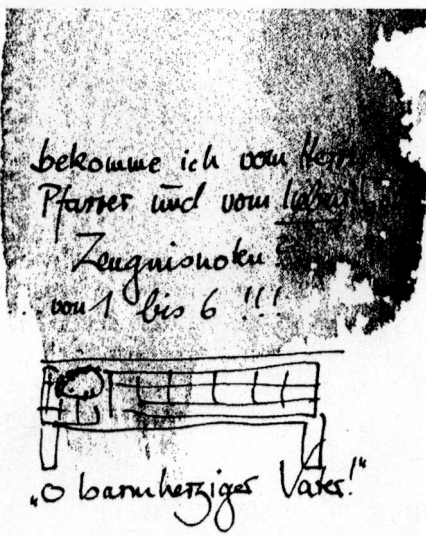 bekomme ich vom Herrn
Pfarrer und vom lieben
Zeugnisnoten
von 1 bis 6 !!!
„O barmherziger Vater!“